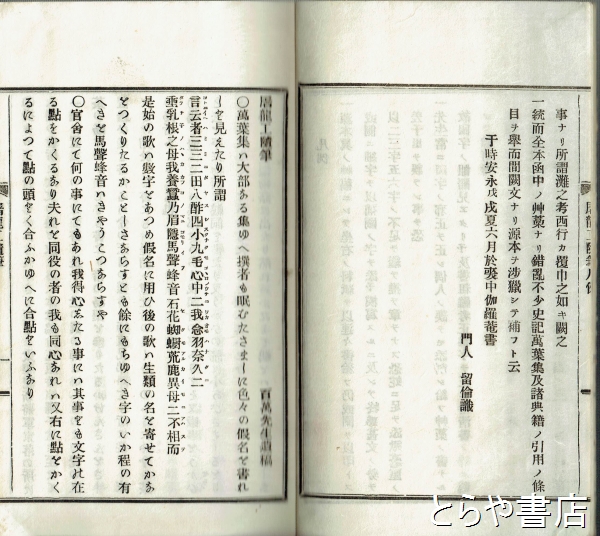 事ナリ所謂灘之考西行カ覆巾之如キ闕之
一統而全本函中ノ艸藁ナリ錯亂不少史記萬葉集及諸典籍ノ引用ノ條
目ヲ擧而間闕文ナリ源本ヲ涉獵シテ補フト云
于時安永戊戌夏六月於娑中伽羅菴書
門人 留倫識
屠龍工隨筆
百萬先生遺稿
〇萬葉集ハ大部ある集ゆへ撰者も眠むたさまーに色々の假名を書れ
ーを見えたり所謂
言云者三三二田八酢四小九毛心中二我念羽奈久二
垂乳根之母我養蠶乃眉隱馬聲蜂音石花蜘蟵荒鹿異母二不相而
是始の歌ハ數字をあつめ假名に用ひ後の歌ハ生類の名を寄せてかあ
とつくりたるかことーさあらすとも餘にもちゆへき字のいか程の有
へきを馬聲蜂音いきやうこつあらすや
〇官舍にて何の事にてもあれ我得心したる事にハ其事を文字此在
る點をかくるあり夫れと同役の者の我も同心あれハ又右に點をかく
るによつて點の頭をく合ふかゆへに合點をいふあり
とらや書店